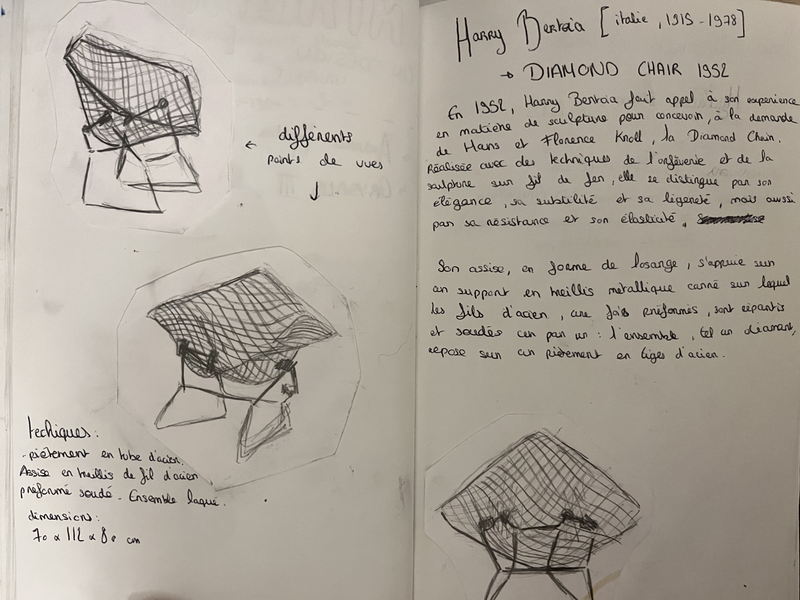 ← différents
points de vues
↓
techniques:
- piètement en tube d'acier.
Assise en treillis de fil d'acier
préformé soudé - Ensemble laqué.
dimensions:
70 x 112 x 80 cm
Harry Bertoia [italie, 1915-1978]
→ DIAMOND CHAIR 1952
En 1952, Harry Bertoia fait appel à son experience
en matière de sculpture pour concevoir, à la demande
de Hans et Florence Knoll, la Diamond Chair.
Réalisée avec des techniques de l'orfèvrerie et de la
sculpture sur fil de fer, elle se distingue par son
élégance, sa subtilité et sa légereté, mais aussi
par sa résistance et son élasticité.
Son assise, en forme de losange, s'appuie sur
un support en treillis metallique carré sur lequel
les fils d'acier, une fois préformés, sont répartis
et soudés un par un : l'ensemble, tel un diamant,
repose sur un piètement en tiges d'acier.